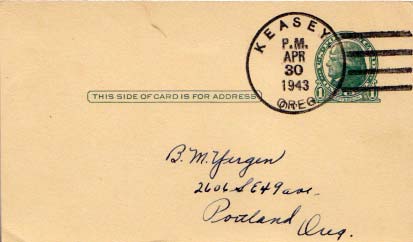 KEASEY
P.M.
APR
30
1943
OREG.
THIS SIDE OF CARD IS FOR ADDRESS
B. M. Yergen
2606 S E 49 ave.
Portland
Oreg.